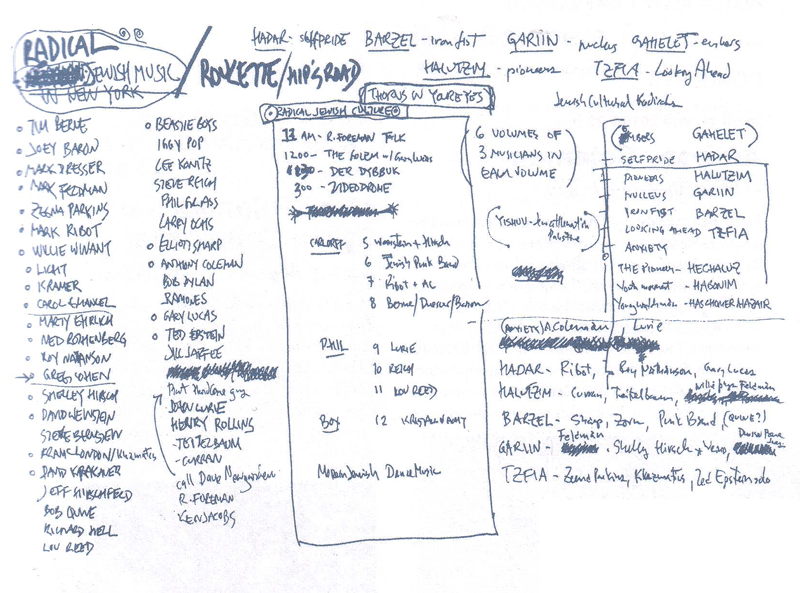 RADICAL
JEWISH MUSIC
IN NEW YORK
/ ROULETTE/HIP'S ROAD
HADAR - selfpride BARZEL - iron fist GARIIN - nucleus GAHELET - embers
HALUTZIM - pioneers TZFIA - Looking Ahead
Jewish Cultural Radicals
TIM BERNE
JOEY BARON
MARK DRESSER
MARK FELDMAN
ZEENA PARKINS
MARK RIBOT
WILLIE WINANT
LICHT
KRAMER
CAROL EMANUEL
MARTY EHRLICH
NED ROTHENBERG
ROY NATHANSON
GREG COHEN
SHELLEY HIRSCH
DAVID WEINSTEIN
STEVE BERNSTEIN
FRANK LONDON/Klezmatics
DAVID KRAKAUER
JEFF HIRSCHFELD
BOB QUINE
RICHARD HELL
LOU REED
BEASTIE BOYS
IGGY POP
LEE KONITZ
STEVE REICH
PHIL GLASS
LARRY OCHS
ELLIOTT SHARP
ANTHONY COLEMAN
BOB DYLAN
RAMONES
GARY LUCAS
TED EPSTEIN
JILL JAFFEE
JOHN LURIE
HENRY ROLLINS
- TEITELBAUM
- CURRAN
call Dave
R. FOREMAN
KEN JACOBS
THORNS IN YOUR EYES
RADICAL JEWISH CULTURE
11 AM - R. FOREMAN TALK
1200 - THE GOLEM w/ Gary Lucas
DER DYBBUK
300 - VIDEODROME
5 Weinstein + Hirsch
6 Jewish Punk Band
7 Ribot + AC
8 Berne/Dresser/Baron
PHIL 9 LURIE
10 REICH
11 LOU REED
12
Modern Jewish Dance Music
6 VOLUMES OF
3 MUSICIANS IN
EACH VOLUME
YISHUV -
Palestine
EMBERS GAHELET
SELFPRIDE HADAR
PIONEERS HALUTZIM
NUCLEUS GARIIN
IRON FIST BARZEL
LOOKING AHEAD TZFIA
ANXIETY
THE PIONEER - HECHALUZ
Youth movement - HABONIM
HASHOMER HAZAIR
(ANXIETY) A. Coleman, Lurie
HADAR - Ribot, Roy Nathanson, Gary Lucas
HALUTZIM - Curran, Teitelbaum,
BARZEL - Sharp, Zorn, Punk Band (QUINE?)
GARIIN - Feldman, Shelley Hirsch
TZFIA - Zeena Parkins, Klezmatics, Ted Epstein